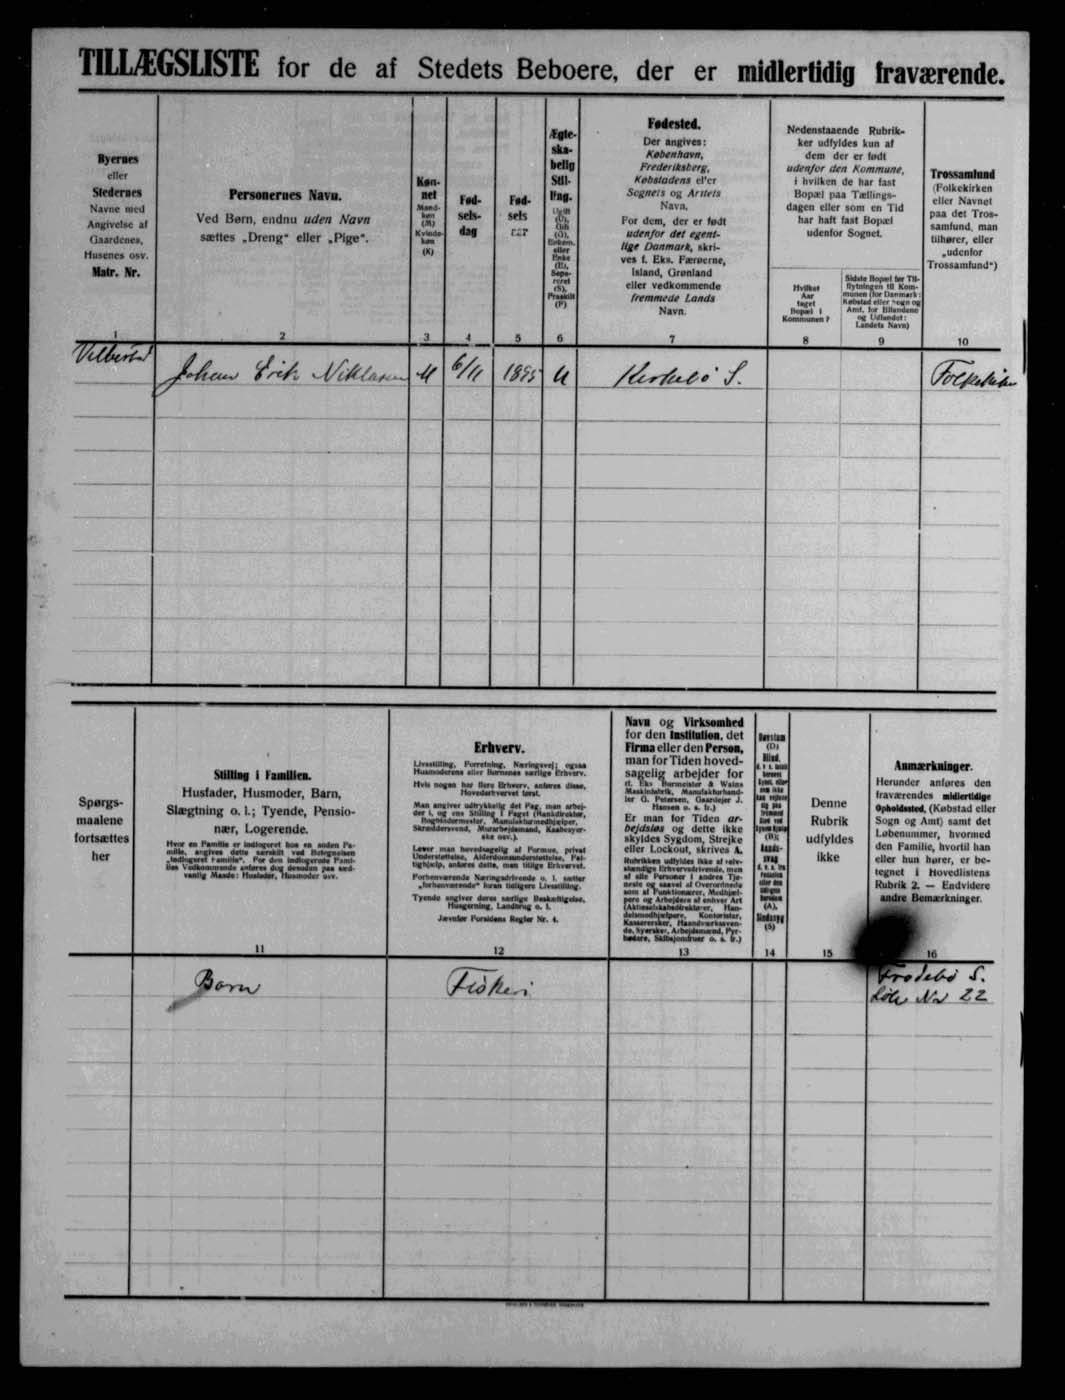 TILLÆGSLISTE for de af Stedets Beboere, der er midlertidig fraværende.
Byernes
eller
Stedernes
Navne med
Angivelse af
Gaardenes,
Husenes osv.
Matr. Nr.
1
Personernes Navn.
Ved Børn, endnu uden Navn
sættes „Dreng“ eller „Pige“.
2
Køn-
net
Mand-
køn
(M)
Kvinde-
køn
(K)
3
Fød-
sels-
dag
4
Fød-
sels
5
Ægte-
ska-
belig
Stil-
ling.
Ugift
(U),
Gift
(G),
Enkem.
eller
Enke
(E),
Sepa-
reret
(S),
Fraskilt
(F)
6
Fødested.
Der angives:
København,
Frederiksberg,
Købstadens eller
Sognets og Amtets
Navn.
For dem, der er født
udenfor det egent-
lige Danmark, skri-
ves f. Eks. Færøerne,
Island, Grønland
eller vedkommende
fremmede Lands
Navn.
7
Nedenstaaende Rubrik-
ker udfyldes kun af
dem der er født
udenfor den Kommune,
i hvilken de har fast
Bopæl paa Tællings-
dagen eller som en Tid
har haft fast Bopæl
udenfor Sognet.
Hvilket
Aar
taget
Bopæl i
Kommunen?
8
Sidste Bopæl før Til-
flytningen til Kom-
munen (for Danmark:
Købstad eller Sogn og
Amt, for Bilandene
og Udlandet:
Landets Navn)
9
Trossamfund
(Folkekirken
eller Navnet
paa det Tros-
samfund, man
tilhører, eller
„udenfor
Trossamfund“)
10
Johan Erik Niklasen M 6/11 1895 U Kirkebø S. Folkekirken
Spørgs-
maalene
fortsættes
her
Stilling i Familien.
Husfader, Husmoder, Barn,
Slægtning o. l.; Tyende, Pensio-
nær, Logerende.
Hvor en Familie er indlogeret hos en anden Fa-
milie, angives dette særskilt ved Betegnelsen
„indlogeret Familie“. For den indlogerede Fami-
lies Vedkommende anføres dog desuden paa sæd-
vanlig Maade: Husfader, Husmoder osv.
11
Erhverv.
Livsstilling, Forretning, Næringsvej; ogsaa
Husmoderens eller Børnenes særlige Erhverv.
Hvis nogen har flere Erhverv, anføres disse,
Hovederhvervet først.
Man angiver udtrykkelig det Fag, man arbej-
der i, og ens Stilling i Faget (Bankdirektør,
Bogbindormester, Manufakturmedhjælper,
Skræddersvend, Murarbejdsmand, Kaabesyer-
ske osv.).
Lever man hovedsagelig af Formue, privat
Understøttelse, Alderdomsunderstøttelse, Fat-
tighjælp, anføres dette, man tillige Erhvervet.
Forhenværende Næringsdrivende o. l. sætter
„forhenværende“ foran tidligere Livsstilling.
Tyende angiver deres særlige Beskæftigelse,
Husgerning, Landbrug o. l.
Jævnfør Forsidens Regler Nr. 4.
12
Navn og Virksomhed
for den Institution, det
Firma eller den Person,
man for Tiden hoved-
sagelig arbejder for
(f. Eks Burmeister & Wains
Maskinfabrik, Manufakturhand-
ler G. Petersen, Gaardejer J.
Hansen o. s. fr.)
Er man for Tiden ar-
bejdsløs og dette ikke
skyldes Sygdom, Strejke
eller Lockout, skrives A.
Rubrikken udfyldes ikke af selv-
stændige Erhvervsdrivende, men
af alle Personer i andres Tje-
neste og saavel af Overordnede
som af Funktionærer, Medhjæl-
pere og Arbejdere af enhver Art
(Aktieselskabsdirektører, Han-
delsmedhjælpere, Kontorister,
Kasserersker, Haandværkssven-
de, Syersker, Arbejdsmænd, Fyr-
bødere, Skibsjondruer o. s. fr.)
13
Døvstum
(D)
Blind,
(B)
Aands-
svag
(A),
Sindssyg
(S)
14
Denne
Rubrik
udfyldes
ikke
15
Anmærkninger.
Herunder anføres den
fraværendes midlertidige
Opholdssted, (Købstad eller
Sogn og Amt) samt det
Løbenummer, hvormed
den Familie, hvortil han
eller hun hører, er be-
tegnet i Hovedlistens
Rubrik 2. — Endvidere
andre Bemærkninger.
16
Barn Fiskeri Frodebø S.
Løbe Nr 22